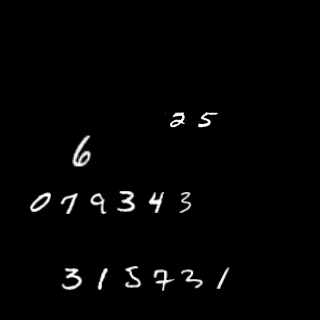 25
6
079343
315731